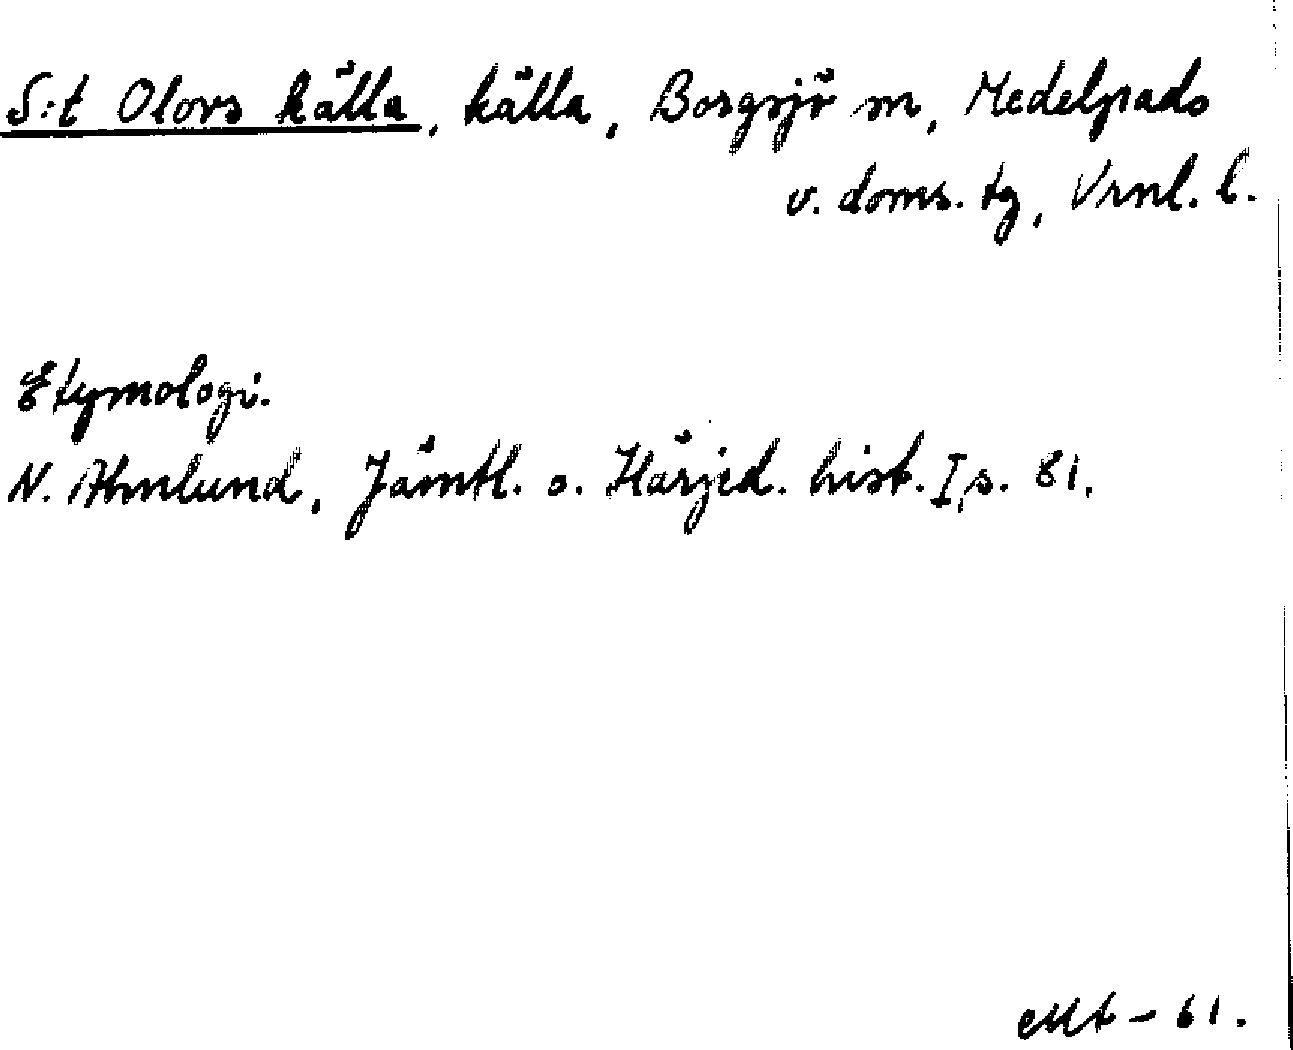 S:t Olovs källa, källa, Borgsjö sn, Medelpads
v. doms. tg, Vrnl. l.
Etymologi.
N. Ahnlund, Jämtl. o. Härjed. hist. I, s. 81.
- 61.